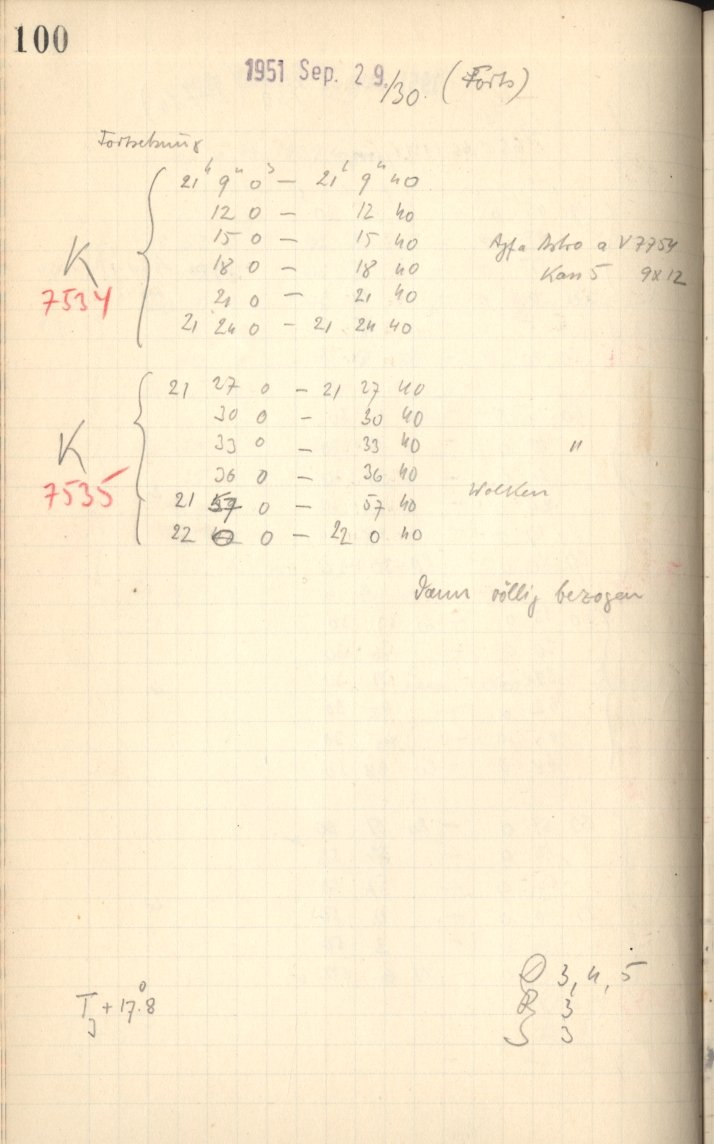 100
1951 Sep. 29./30. (Forts)
Fortsetzung
21ʰ 9ᵐ 0ˢ — 21ʰ 9ᵐ 40
12 0 — 12 40
15 0 — 15 40 Agfa Astro a V7754
K 18 0 — 18 40 Kass 5 9x12
7534 21 0 — 21 40
21 24 0 — 21 24 40
21 27 0 — 21 27 40
30 0 — 30 40
K 33 0 — 33 40 "
36 0 — 36 40
7535 21 57 0 — 57 40 Wolken
22 0 0 — 22 0 40
Dann völlig bezogen
3, 4, 5
T + 17°.8 R 3
S 3